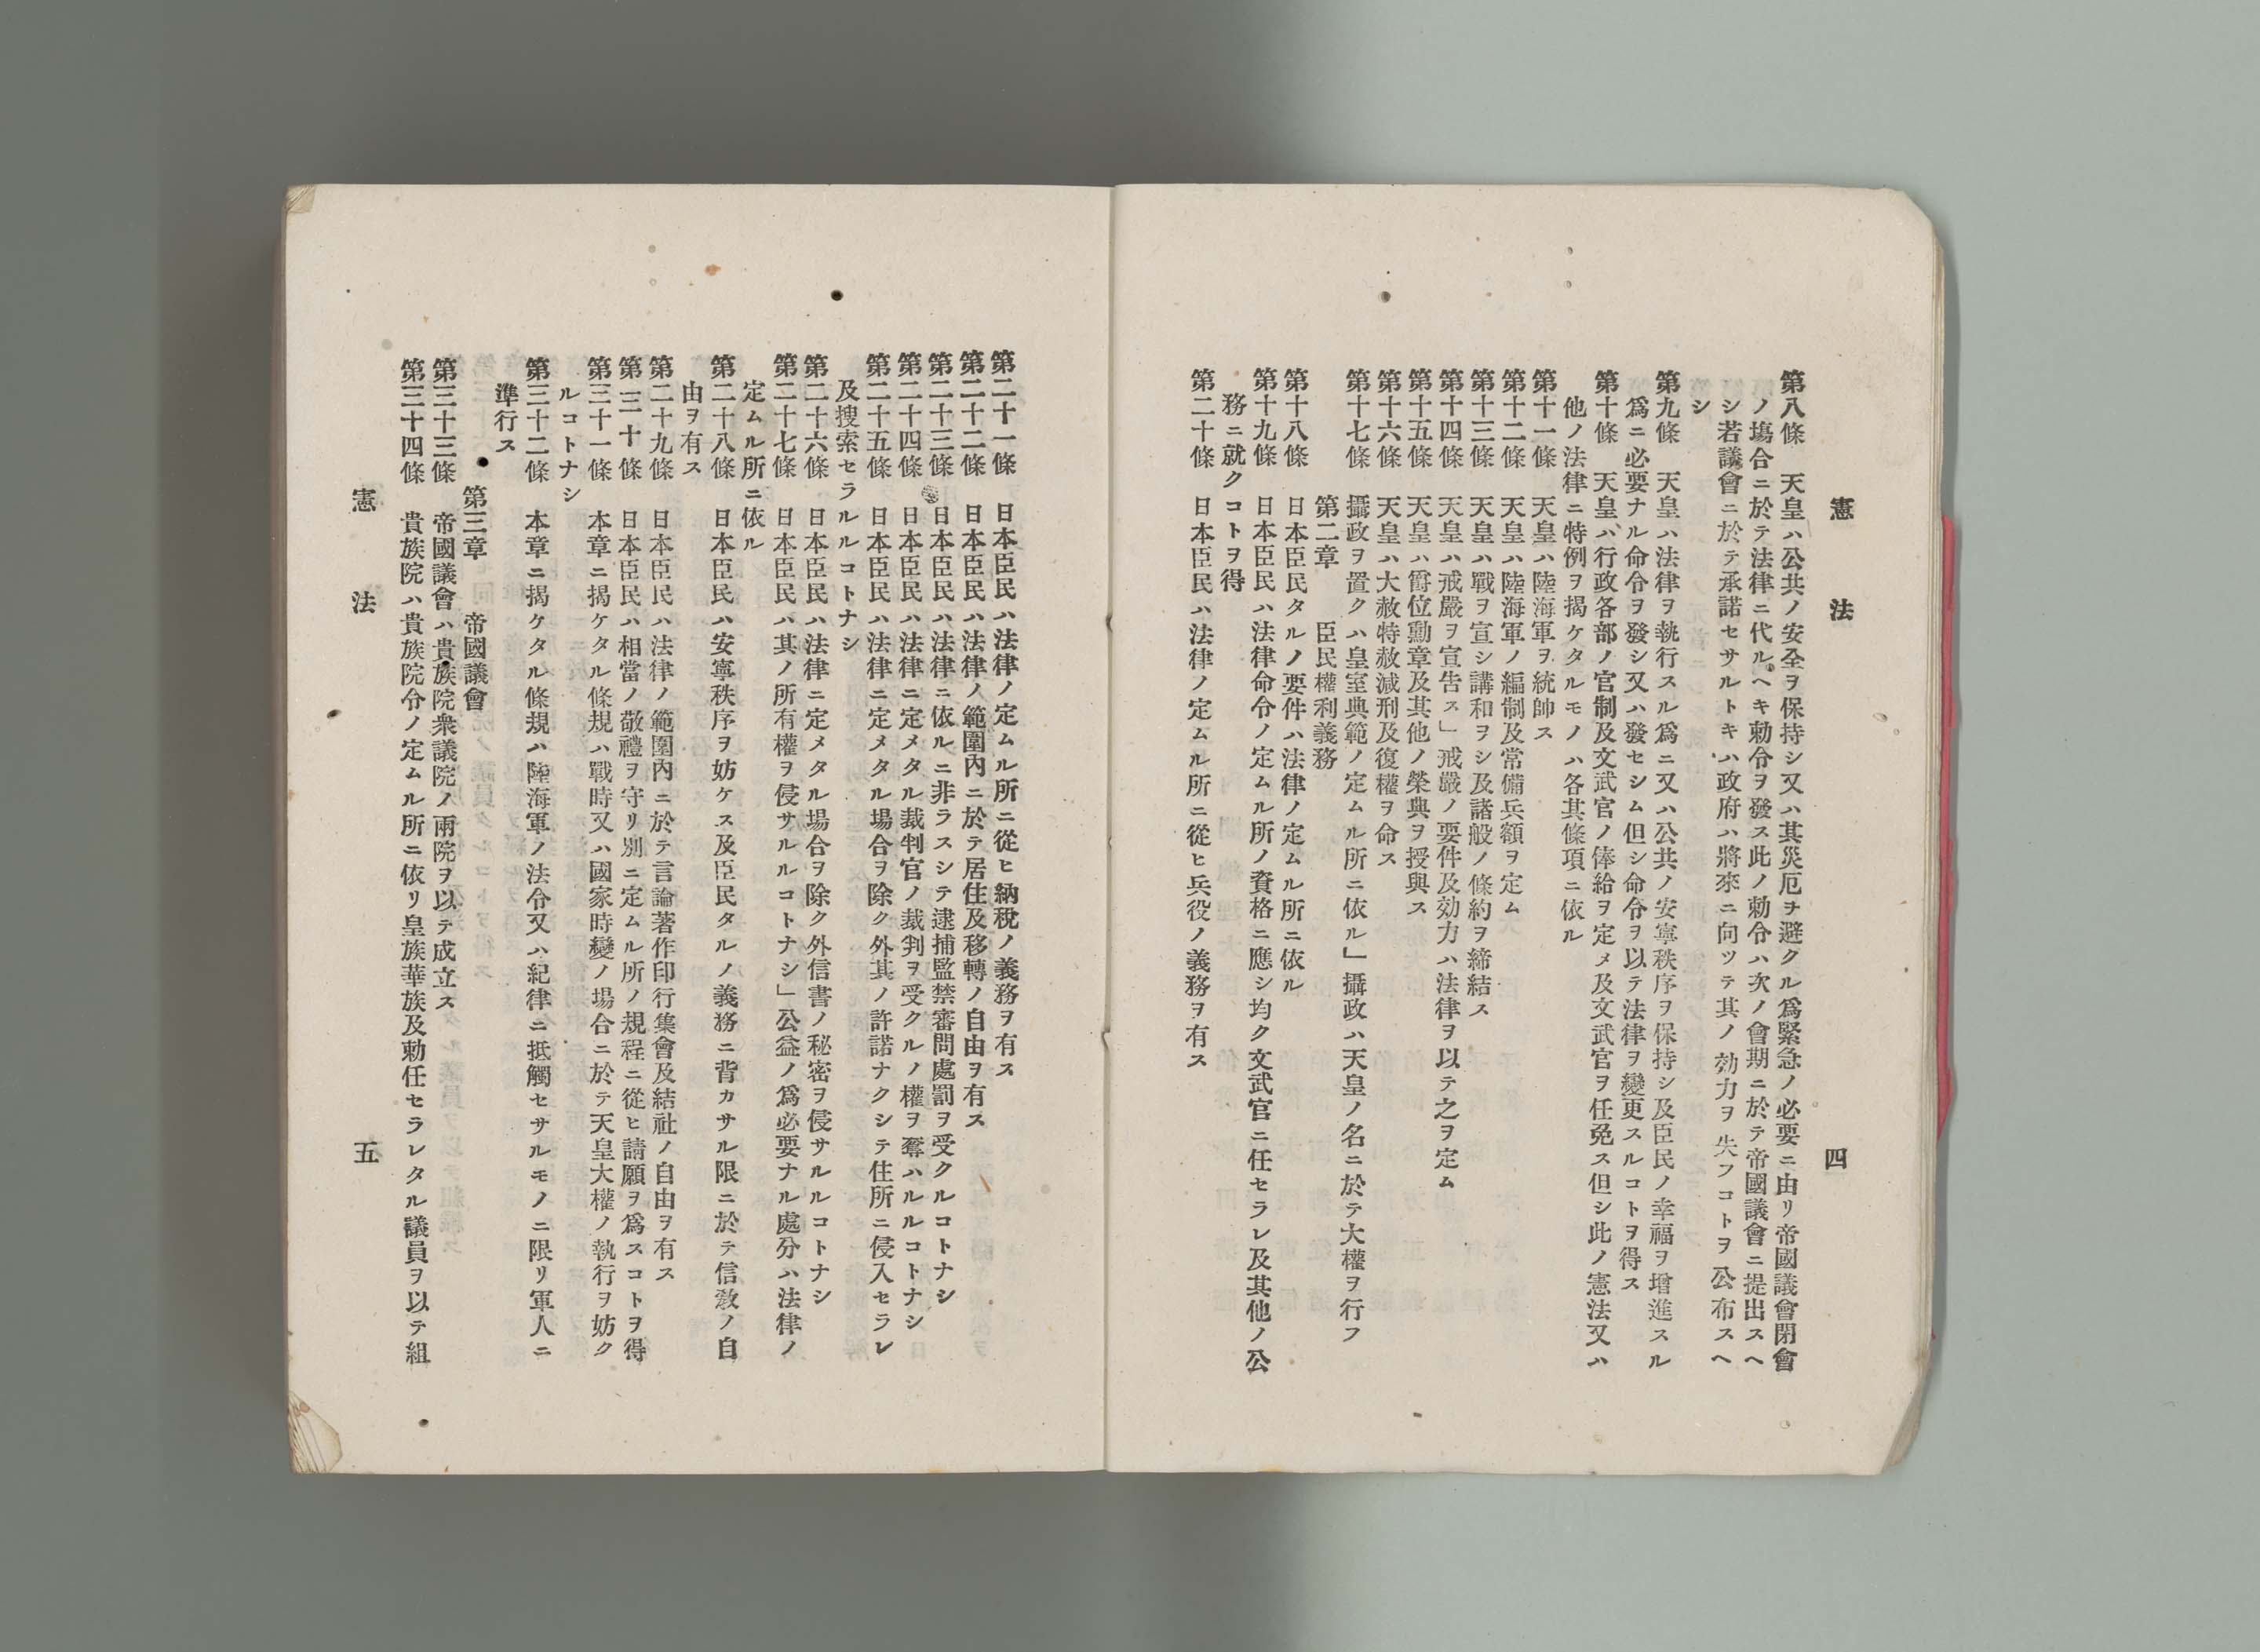 憲法
四
第八條　天皇ハ公共ノ安全ヲ保持シ又ハ其災厄ヲ避クル爲緊急ノ必要ニ由リ帝國議會閉會
ノ塲合ニ於テ法律ニ代ルヘキ勅令ヲ發ス此ノ勅令ハ次ノ會期ニ於テ帝國議會ニ提出スヘ
シ若議會ニ於テ承諾セサルトキハ政府ハ將來ニ向ツテ其ノ効力ヲ失フコトヲ公布スヘ
シ
第九條　天皇ハ法律ヲ執行スル爲ニ又ハ公共ノ安寧秩序ヲ保持シ及臣民ノ幸福ヲ增進スル
爲ニ必要ナル命令ヲ發シ又ハ發セシム但シ命令ヲ以テ法律ヲ變更スルコトヲ得ス
第十條　天皇ハ行政各部ノ官制及文武官ノ俸給ヲ定メ及文武官ヲ任免ス但シ此ノ憲法又ハ
他ノ法律ニ特例ヲ揭ケタルモノハ各其條項ニ依ル
第十一條　天皇ハ陸海軍ヲ統帥ス
第十二條　天皇ハ陸海軍ノ編制及常備兵額ヲ定ム
第十三條　天皇ハ戰ヲ宣シ講和ヲシ及諸般ノ條約ヲ締結ス
第十四條　天皇ハ戒嚴ヲ宣告ス」戒嚴ノ要件及効力ハ法律ヲ以テ之ヲ定ム
第十五條　天皇ハ爵位勳章及其他ノ榮典ヲ授與ス
第十六條　天皇ハ大赦特赦減刑及復權ヲ命ス
第十七條　攝政ヲ置クハ皇室典範ノ定ムル所ニ依ル」攝政ハ天皇ノ名ニ於テ大權ヲ行フ
第二章　臣民權利義務
第十八條　日本臣民タルノ要件ハ法律ノ定ムル所ニ依ル
第十九條　日本臣民ハ法律命令ノ定ムル所ノ資格ニ應シ均ク文武官ニ任セラレ及其他ノ公
務ニ就クコトヲ得
第二十條　日本臣民ハ法律ノ定ムル所ニ從ヒ兵役ノ義務ヲ有ス
第二十一條　日本臣民ハ法律ノ定ムル所ニ從ヒ納稅ノ義務ヲ有ス
第二十二條　日本臣民ハ法律ノ範圍內ニ於テ居住及移轉ノ自由ヲ有ス
第二十三條　日本臣民ハ法律ニ依ルニ非ラスシテ逮捕監禁審問處罰ヲ受クルコトナシ
第二十四條　日本臣民ハ法律ニ定メタル裁判官ノ裁判ヲ受クルノ權ヲ奪ハルルコトナシ
第二十五條　日本臣民ハ法律ニ定メタル塲合ヲ除ク外其ノ許諾ナクシテ住所ニ侵入セラレ
及搜索セラルルコトナシ
第二十六條　日本臣民ハ法律ニ定メタル塲合ヲ除ク外信書ノ秘密ヲ侵サルルコトナシ
第二十七條　日本臣民ハ其ノ所有權ヲ侵サルルコトナシ」公益ノ爲必要ナル處分ハ法律ノ
定ムル所ニ依ル
第二十八條　日本臣民ハ安寧秩序ヲ妨ケス及臣民タルノ義務ニ背カサル限ニ於テ信敎ノ自
由ヲ有ス
第二十九條　日本臣民ハ法律ノ範圍內ニ於テ言論著作印行集會及結社ノ自由ヲ有ス
第三十條　日本臣民ハ相當ノ敬禮ヲ守リ別ニ定ムル所ノ規程ニ從ヒ請願ヲ爲スコトヲ得
第三十一條　本章ニ揭ケタル條規ハ戰時又ハ國家時變ノ塲合ニ於テ天皇大權ノ執行ヲ妨ク
ルコトナシ
第三十二條　本章ニ揭ケタル條規ハ陸海軍ノ法令又ハ紀律ニ抵觸セサルモノニ限リ軍人ニ
準行ス
第三章　帝國議會
第三十三條　帝國議會ハ貴族院衆議院ノ兩院ヲ以テ成立ス
第三十四條　貴族院ハ貴族院令ノ定ムル所ニ依リ皇族華族及勅任セラレタル議員ヲ以テ組
憲法
五